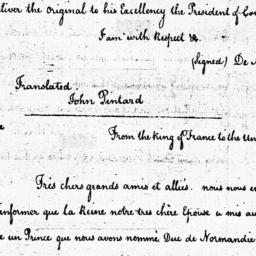 liver the original to his Excellency the President of Con
I am with Respect &.
(Signed) De M
Translated.
John Pintard
From the King of France to the Un
Très chers grands amis et alliés. nous nous en
informer que la Reine notre très chère Epouse a mis au
e un Prince que nous avons nommé Duc de Normandie